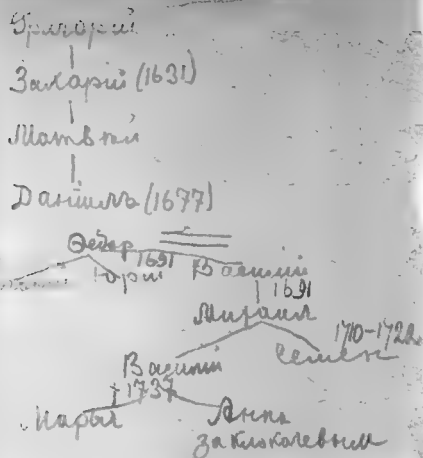 Григорий
Захарій (1631)
Матвѣй
Даніилъ (1677)
Ѳедор 1691
Юрій Василій
1691
Михаил
1710-1722
Семен
Василій
† 1737
Марья Анна
за Клокачевым